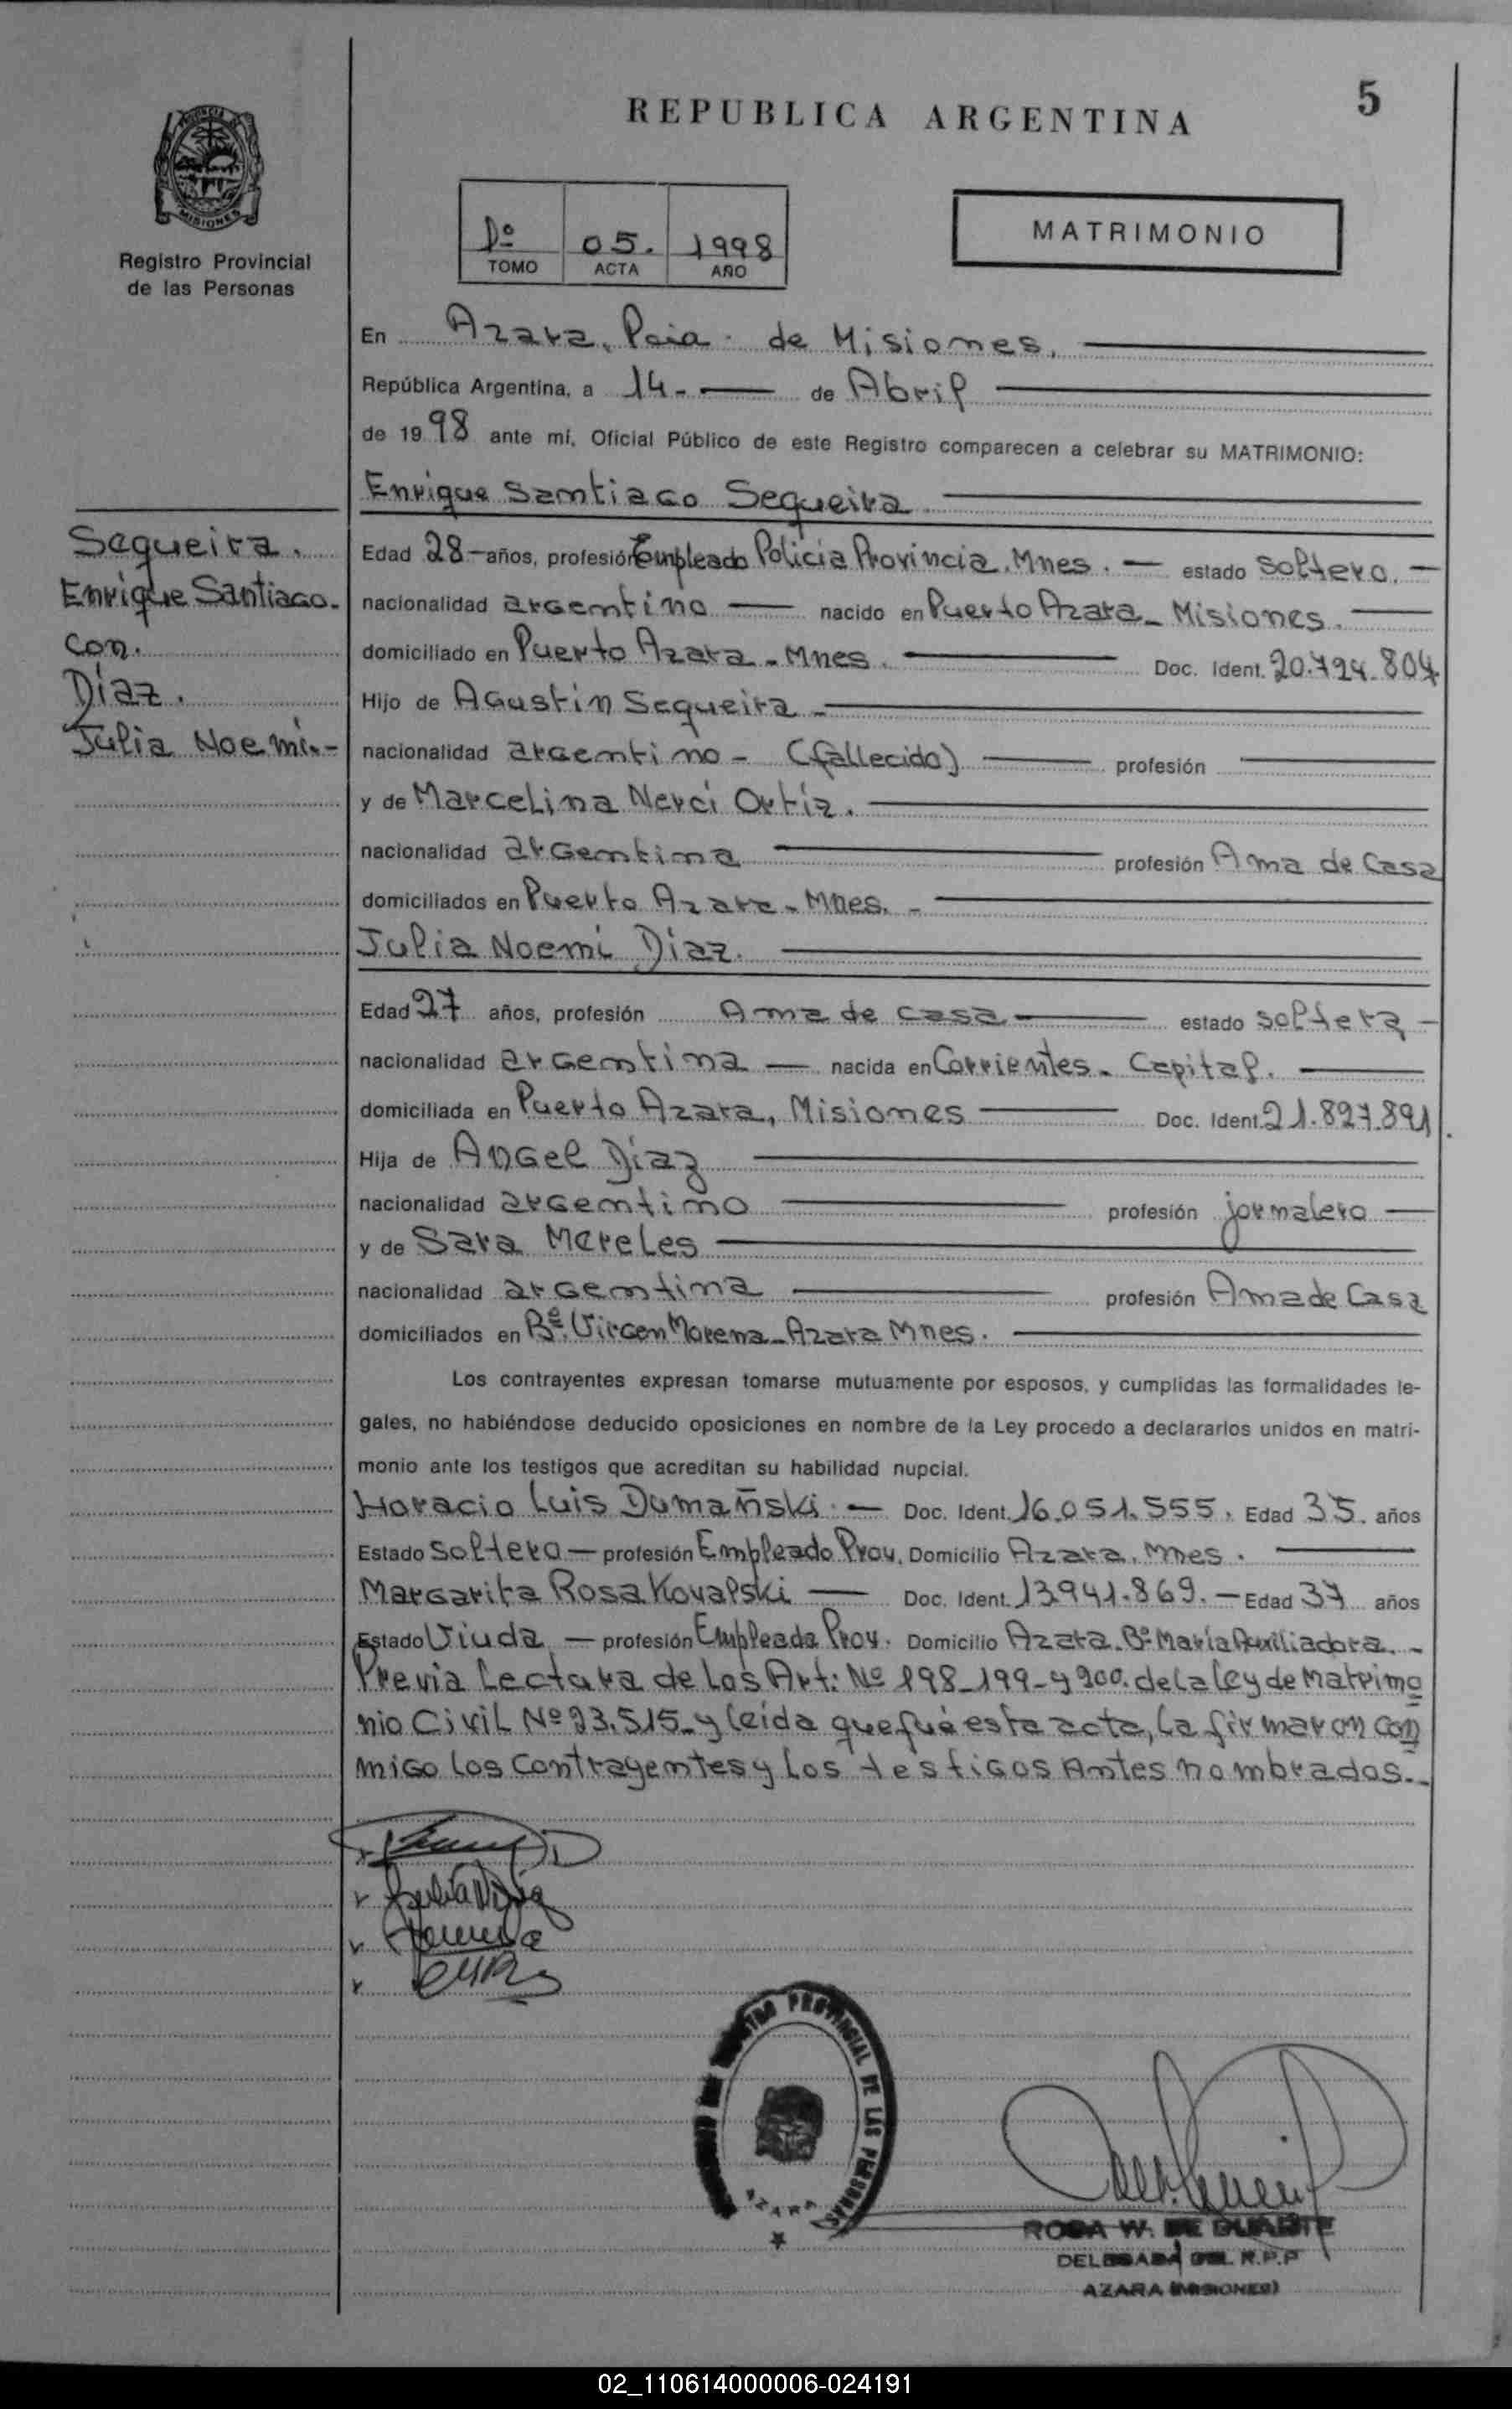 5
REPUBLICA ARGENTINA
MISIONES
Registro Provincial
de las Personas
Dº 05. 1998
TOMO ACTA AÑO
MATRIMONIO
En Azara, Pcia. de Misiones.
República Argentina, a 14.- de Abril
de 1998 ante mí, Oficial Público de este Registro comparecen a celebrar su MATRIMONIO:
Enrique Santiago Sequeira
Sequeira.
Enrique Santiago.
con.
Díaz.
Julia Noemí.-
Edad 28- años, profesión Empleado Policia Provincia. Mnes. - estado soltero. -
nacionalidad argentino nacido en Puerto Azara - Misiones.
domiciliado en Puerto Azara - Mnes. Doc. Ident. 20.794.804
Hijo de Agustín Sequeira -
nacionalidad argentino - (fallecido) profesión
y de Marcelina Nerci Ortíz.
nacionalidad argentina profesión Ama de Casa
domiciliados en Puerto Azara - Mnes. -
Julia Noemí Díaz.
Edad 27 años, profesión Ama de casa estado soltera -
nacionalidad argentina nacida en Corrientes. Capital.
domiciliada en Puerto Azara, Misiones Doc. Ident. 21.827.891.
Hija de Angel Díaz
nacionalidad argentino profesión jornalero
y de Sara Mereles
nacionalidad argentina profesión Ama de Casa
domiciliados en Bº. Virgen Morena - Azara Mnes.
Los contrayentes expresan tomarse mutuamente por esposos, y cumplidas las formalidades le-
gales, no habiéndose deducido oposiciones en nombre de la Ley procedo a declararlos unidos en matri-
monio ante los testigos que acreditan su habilidad nupcial.
Horacio Luis Dumañski. - Doc. Ident. 16.051.555. Edad 35. años
Estado soltero - profesión Empleado Prov. Domicilio Azara. Mnes.
Margarita Rosa Kovalski - Doc. Ident. 13.941.869. - Edad 37 años
Estado Viuda - profesión Empleada Prov. Domicilio Azara. Bº María Auxiliadora. -
Previa Lectura de los Art: Nº 198-199-y 200. de la ley de Matrimo
nio Civil Nº 23.515-y leída que fué esta acta, la firmaron con
migo los contrayentes y los testigos antes nombrados.-
Julia Díaz
REGISTRO PROVINCIAL DE LAS PERSONAS
AZARA
ROSA W. DE DUARTE
DELEGADA DEL R.P.P
AZARA (MISIONES)
02_110614000006-024191